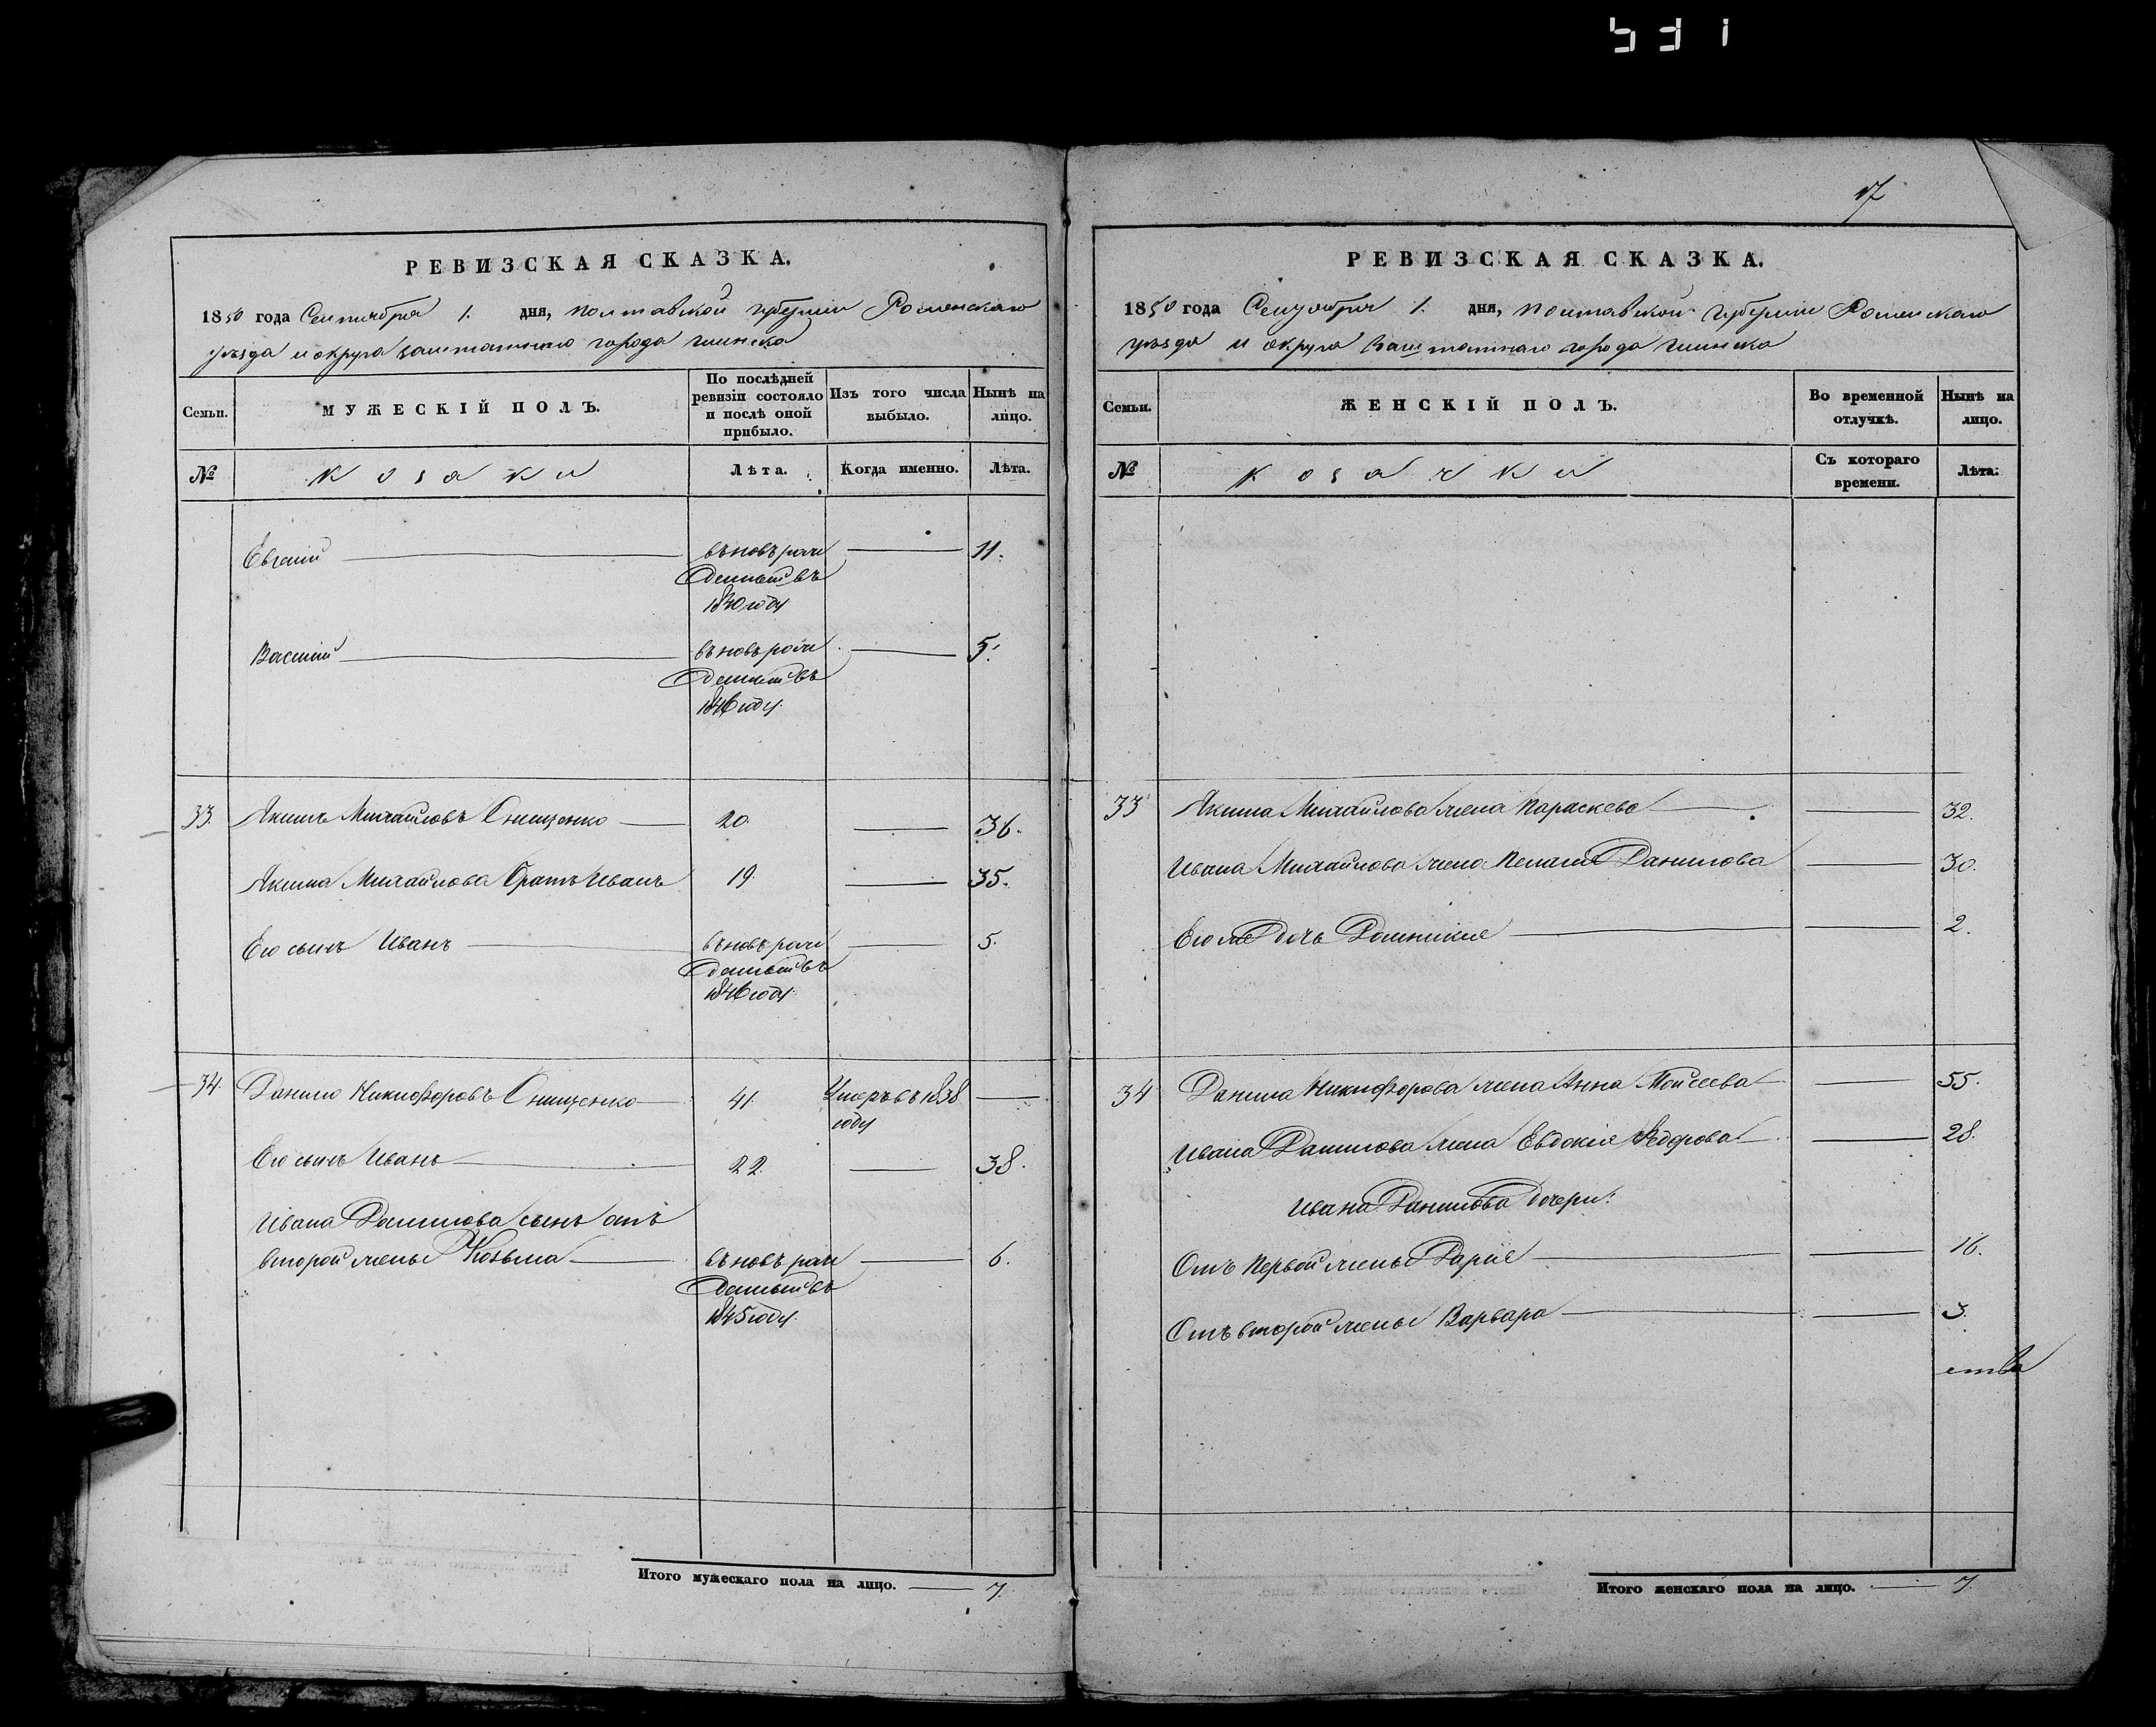 531
РЕВИЗСКАЯ СКАЗКА.
1850 года Сентября 1. дня, Полтавской губернии Роменскаго
уезда и округа заштатнаго города Глинска
Семьи.
МУЖЕСКІЙ ПОЛЪ.
По послѣдней ревизіи состояло и послѣ оной прибыло.
Изъ того числа выбыло.
Нынѣ на лицо.
№
Козаки
Лѣта.
Когда именно.
Лѣта.
Евгеній вьновь рож 11.
денный въ
1840 году
Василій вьновь рож 5.
денный въ
1846 году.
33. Якимъ Михайловъ Онищенко 20. 36.
Якима Михайлова братъ Иванъ 19. 35.
Его сынъ Иванъ вьновь рож 5.
денный въ
1846 году.
34. Данило Никифоровъ Онищенко 41. Умеръ въ 1838
году
Его сынъ Иванъ 22. 38.
Ивана Данилова сынъ отъ
второй жены Козьма вьновь рож 6.
денный въ
1845 году.
Итого мужескаго пола на лицо. 7.
17
РЕВИЗСКАЯ СКАЗКА.
1850 года Сентября 1. дня, Полтавской губернии Роменскаго
уезда и округа Заштатнаго города Глинска
Семьи.
ЖЕНСКІЙ ПОЛЪ.
Во временной отлучкѣ.
Нынѣ на лицо.
№
Козачки
Съ котораго времени.
Лѣта.
33 Якима Михайлова жена Параскева 32.
Ивана Михайлова жена Пелагия Данилова 30.
Его же дочь Домникия 2.
34 Данила Никифорова жена Анна Моисеева 55.
Ивана Данилова жена Евдокия Федорова 28.
Ивана Данилова дочери:
Отъ первой жены Дария 16.
Отъ второй жены Варвара 3.
Итого женскаго пола на лицо. 7.